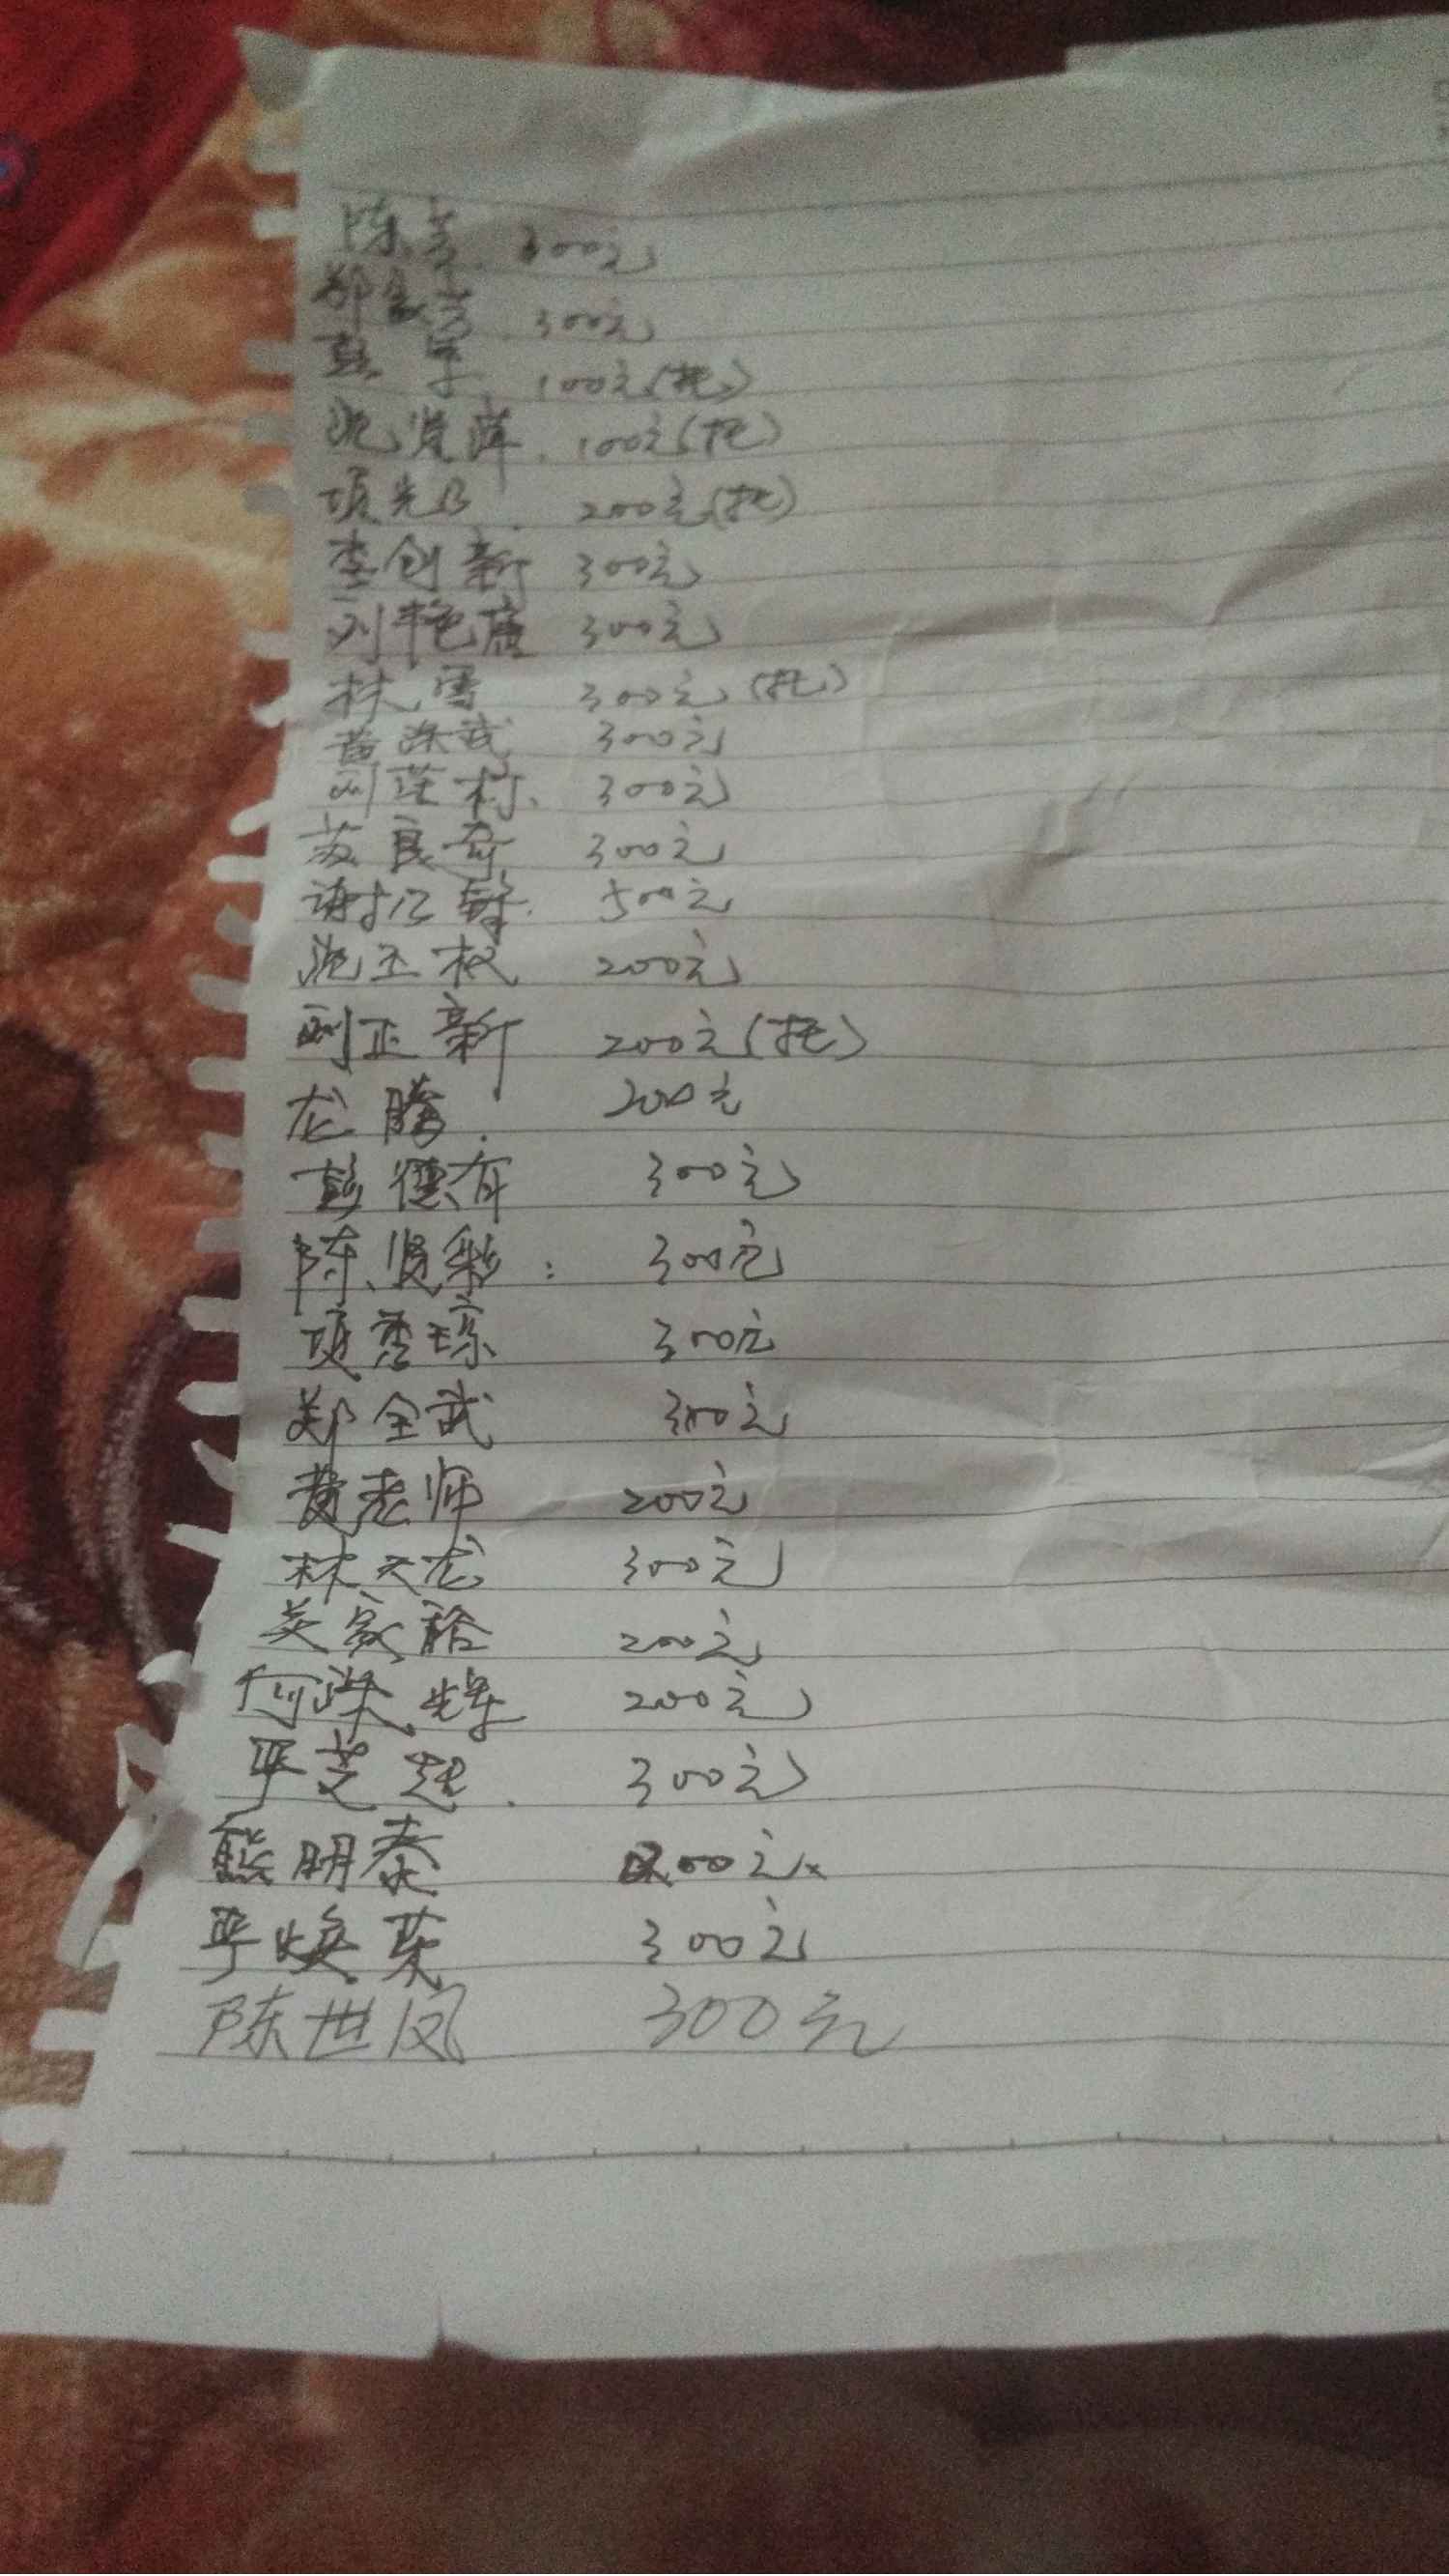 陈芳 300元
郑家芳 300元
彭军 100元(托)
沈贤萍 100元(托)
项先B 200元(托)
李创新 300元
刘艳康 300元
林雪 300元(托)
黄珠武 300元
刘莲树 300元
苏良奇 300元
谢红 500元
沈玉权 200元
刘正新 200元(托)
龙腾 200元
彭德有 300元
陈贤彩: 300元
项秀琼 300元
郑全武 300元
黄老师 200元
林天龙 300元
吴家裕 200元
何珠辉 200元
严芝起 300元
熊明泰 200元
严焕荣 300元
陈世凤 300元